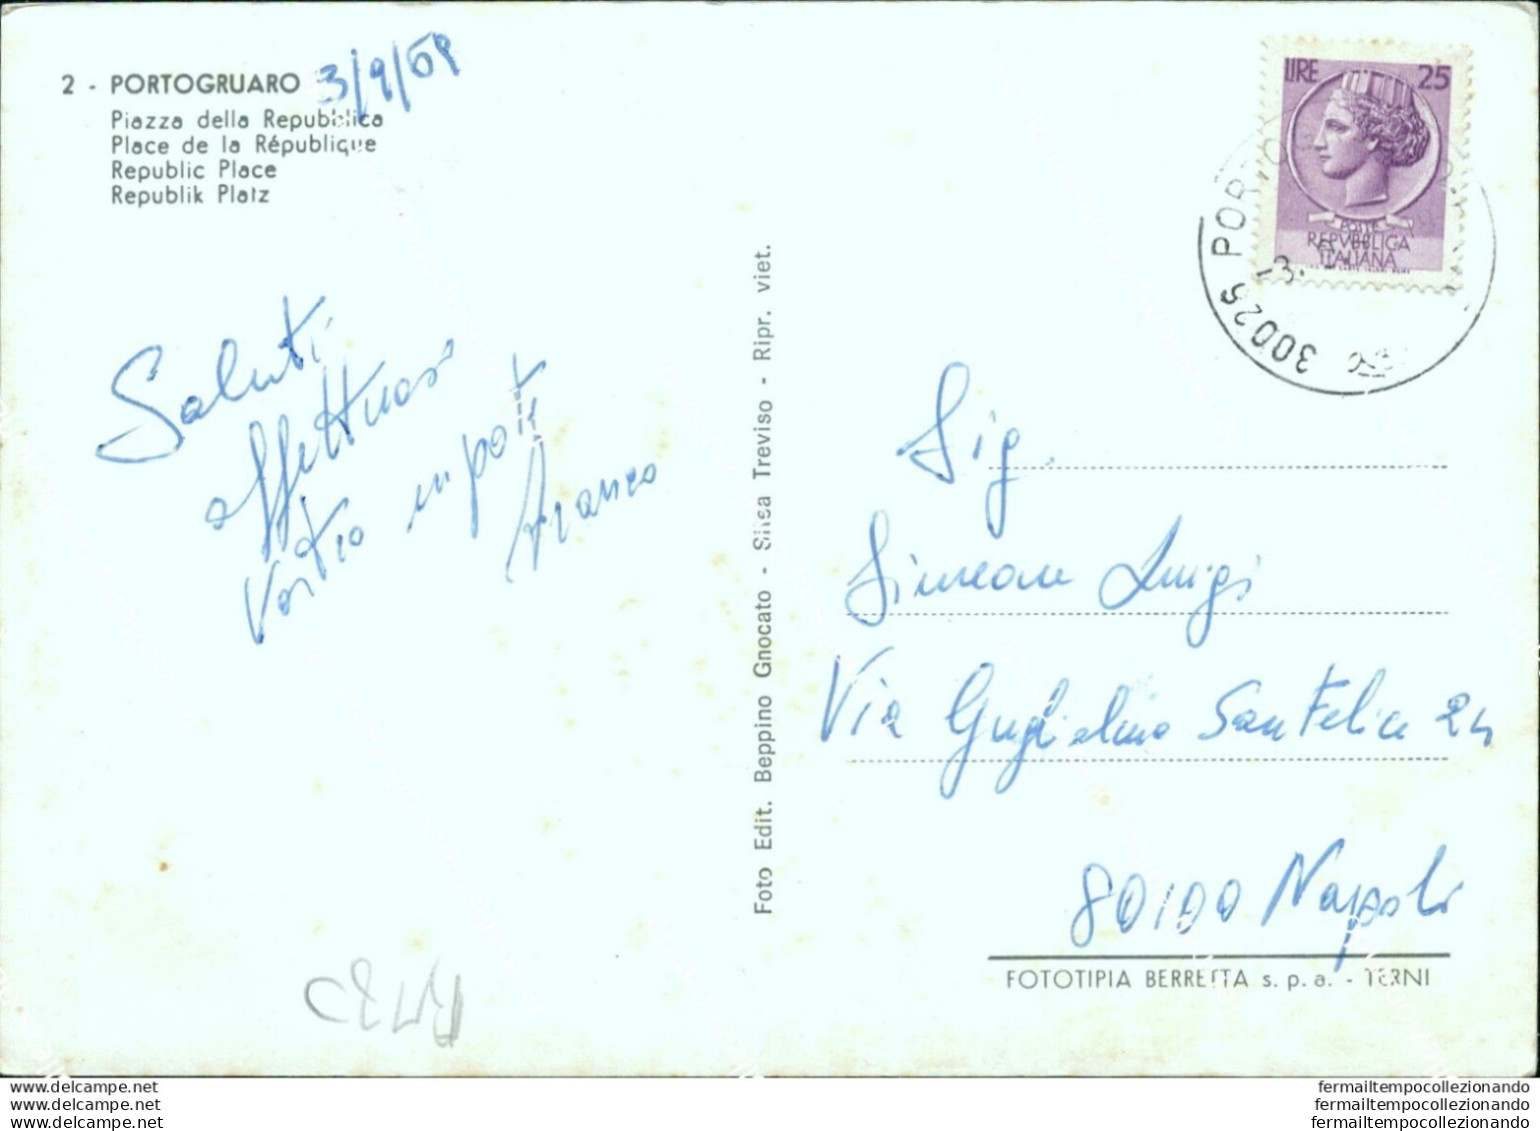 2 - PORTOGRUARO
3/9/69
Piazza della Repubblica
Place de la République
Republic Place
Republik Platz
LIRE 25
POSTE
REPVBBLICA
ITALIANA
30026 PORTO
Saluti
affettuosi
Vostro nipote
Franco
Foto Edit. Beppino Gnocato - Silsa Treviso - Ripr. viet.
Sig.
Simeone Luigi
Via Guglielmo San Felice 24
80100 Napoli
FOTOTIPIA BERRETTA s.p.a. - TERNI
www.delcampe.net
www.delcampe.net
www.delcampe.net
fermailtempocollezionando
fermailtempocollezionando
fermailtempocollezionando